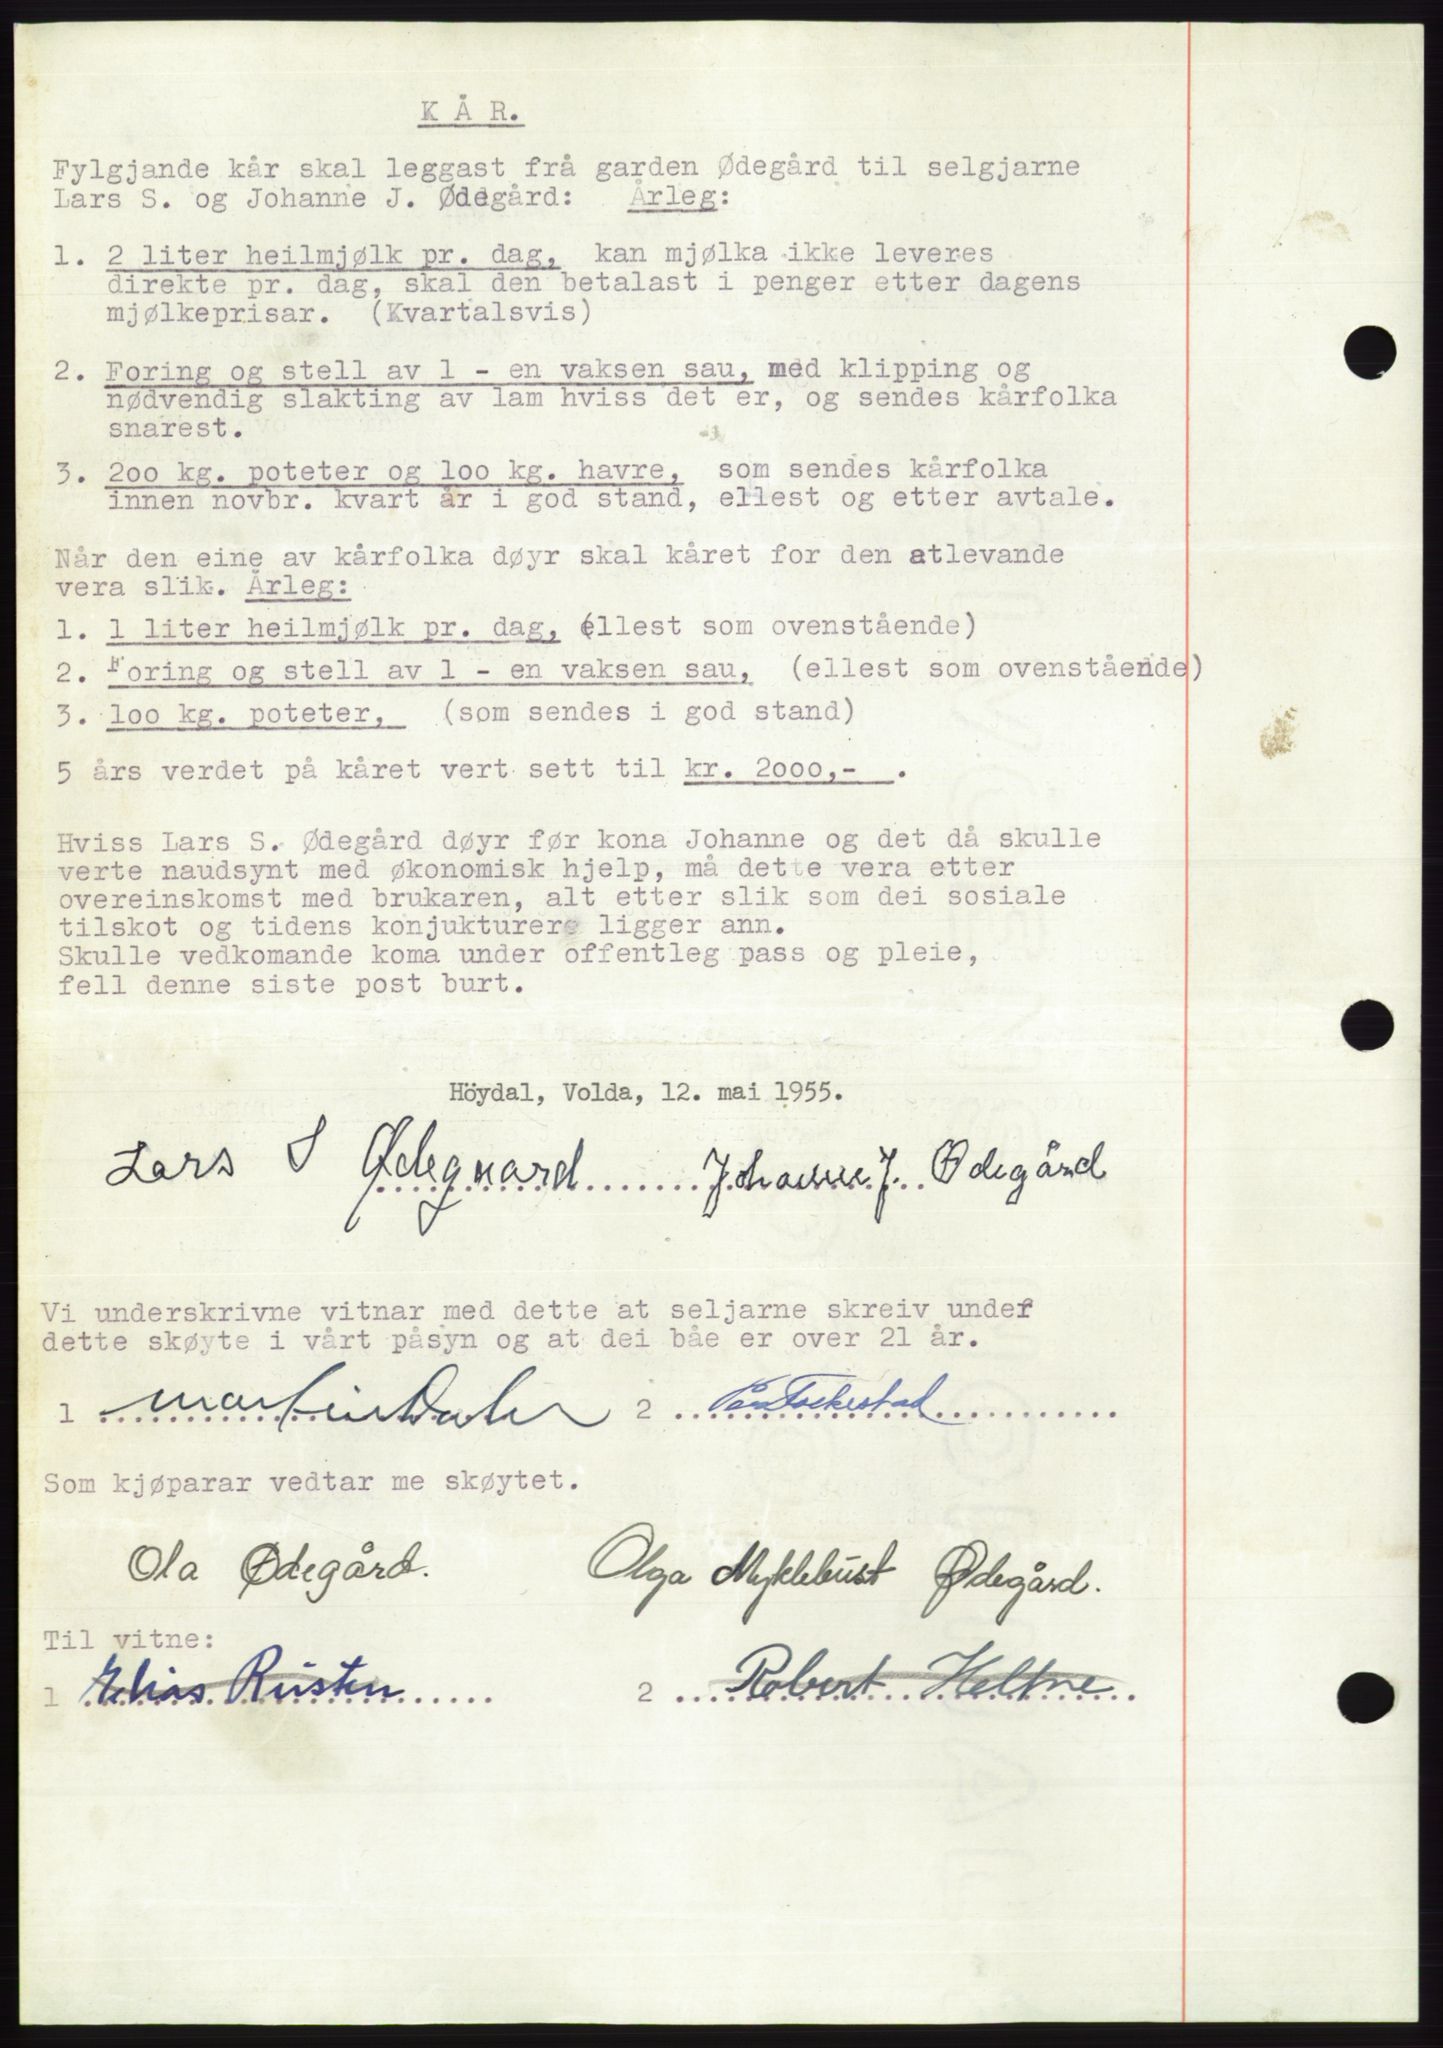 K Å R.
Fylgjande kår skal leggast frå garden Ødegård til selgjarne
Lars S. og Johanne J. Ødegård: Årleg:
1. 2 liter heilmjølk pr. dag, kan mjølka ikke leveres
direkte pr. dag, skal den betalast i penger etter dagens
mjølkeprisar. (Kvartalsvis)
2. Foring og stell av 1 - en vaksen sau, med klipping og
nødvendig slakting av lam hviss det er, og sendes kårfolka
snarest.
3. 200 kg. poteter og 100 kg. havre, som sendes kårfolka
innen novbr. kvart år i god stand, ellest og etter avtale.
Når den eine av kårfolka døyr skal kåret for den atlevande
vera slik. Årleg:
1. 1 liter heilmjølk pr. dag, (ellest som ovenstående)
2. Foring og stell av 1 - en vaksen sau, (ellest som ovenstående)
3. 100 kg. poteter, (som sendes i god stand)
5 års verdet på kåret vert sett til kr. 2000,- .
Hviss Lars S. Ødegård døyr før kona Johanne og det då skulle
verte naudsynt med økonomisk hjelp, må dette vera etter
overeinskomst med brukaren, alt etter slik som dei sosiale
tilskot og tidens konjukturere ligger ann.
Skulle vedkomande koma under offentleg pass og pleie,
fell denne siste post burt.
Höydal, Volda, 12. mai 1955.
Lars S Ødeguard Johanne J. Ødegård
Vi underskrivne vitnar med dette at seljarne skreiv under
dette skøyte i vårt påsyn og at dei båe er over 21 år.
1 Martin Dahl 2
Som kjøparar vedtar me skøytet.
Ola Ødegård. Olga Myklebust Ødegård.
Til vitne:
1 Elias Rusten 2 Robert Heltne